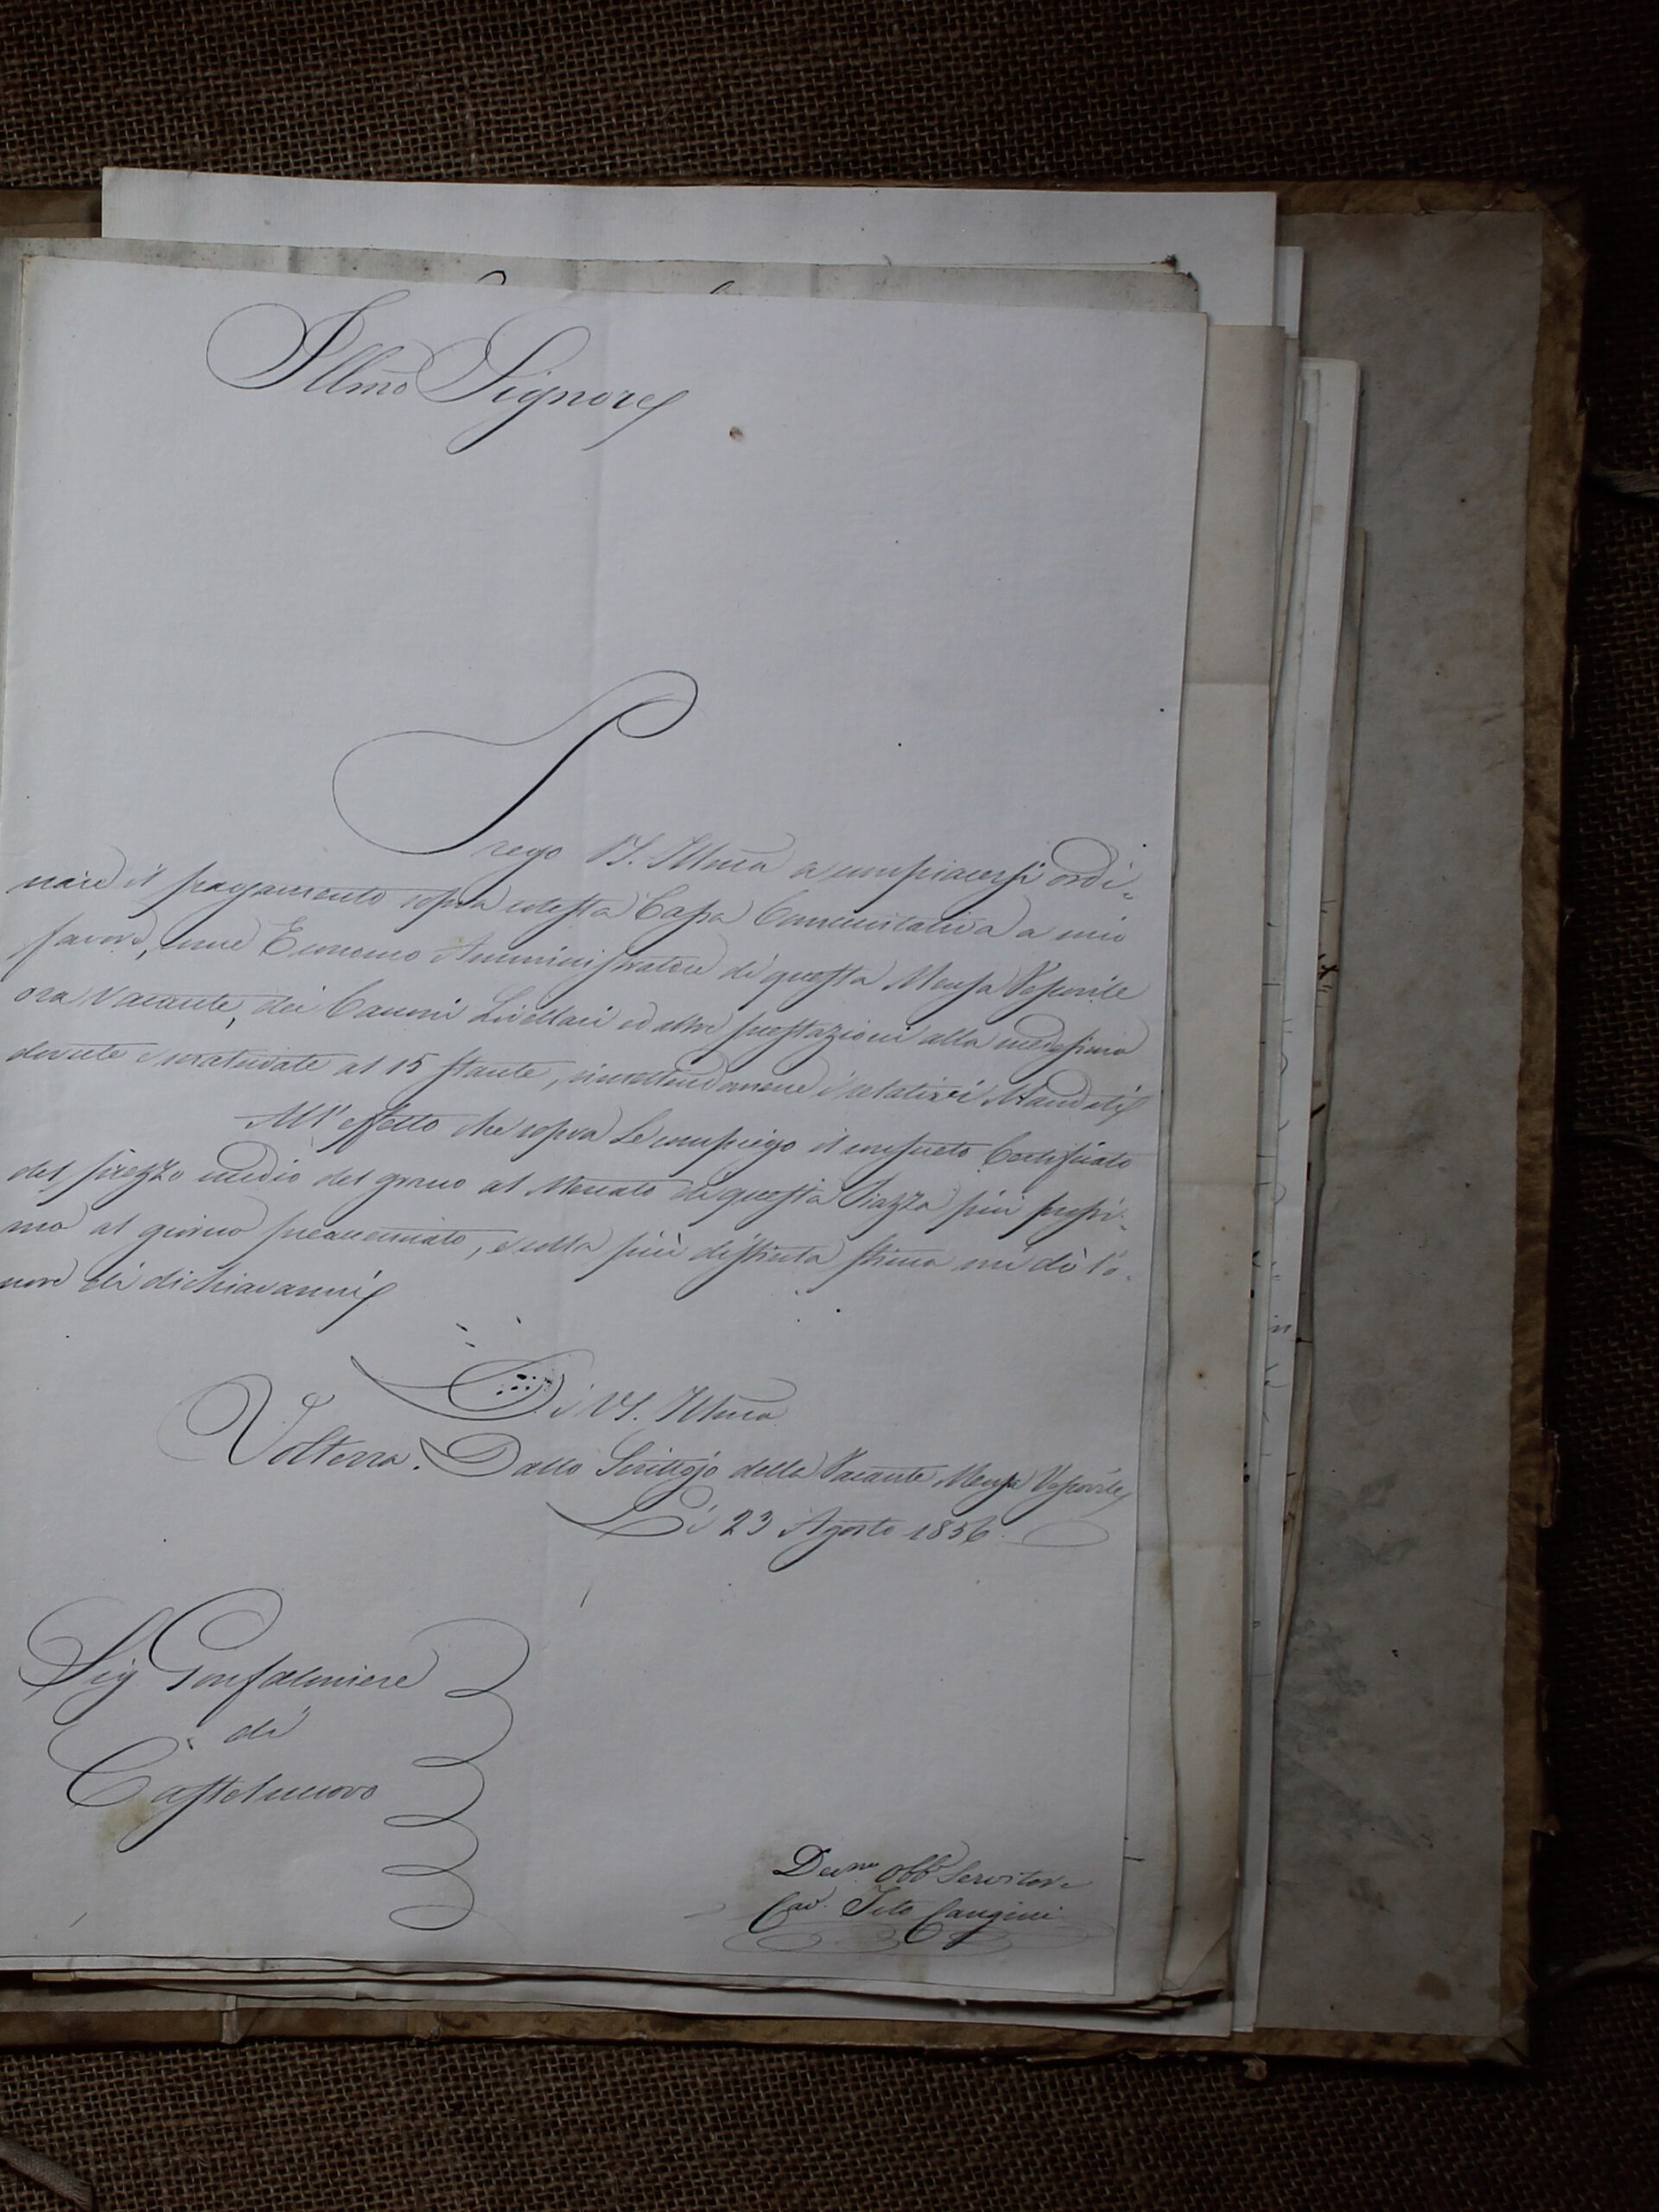 Illmo Signore
Prego VS. Illma a compiacersi ordi=
nare il pagamento sopra cotesta Cassa Comunitativa a mio
favore, come Economo Amministratore di questa Mensa Vescovile
ora Vacante, dei Canoni Livellari ed altre prestazioni alla medesima
dovute e maturate al 15 stante, rimettendomene i relativi Mandati
All'effetto che sopra Le compiego il consueto Certificato
del prezzo medio del grano al Mercato di questa Piazza più prossi=
mo al giorno preaccennato, e colla più distinta stima mi dò l'o=
nore di dichiararmi
Di VS. Illma
Volterra. Dallo Scrittojo della Vacante Mensa Vescovile
Li 23 Agosto 1856.
Sig Gonfaloniere
di
Castelnuovo
Devmo Obbo Servitore
Cav. Tito Cangini